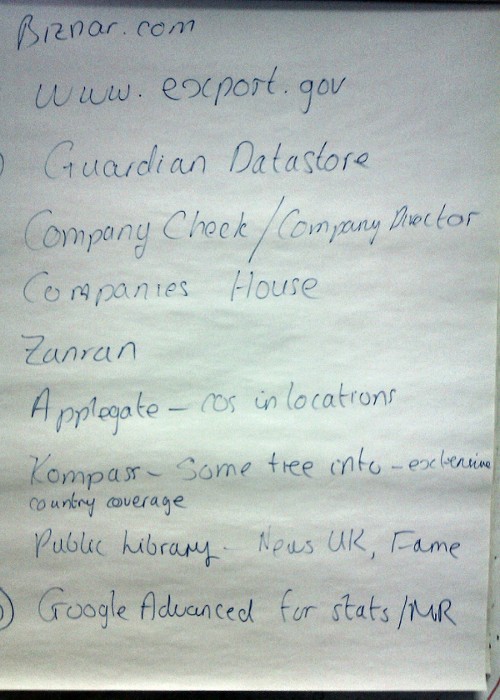 Biznar.com
www.export.gov
Guardian Datastore
Company Check/Company Director
Companies House
Zanran
Applegate - cos in locations
Kompass - Some free info - extensive
country coverage
Public Library - News UK, Fame
Google Advanced for stats/MR